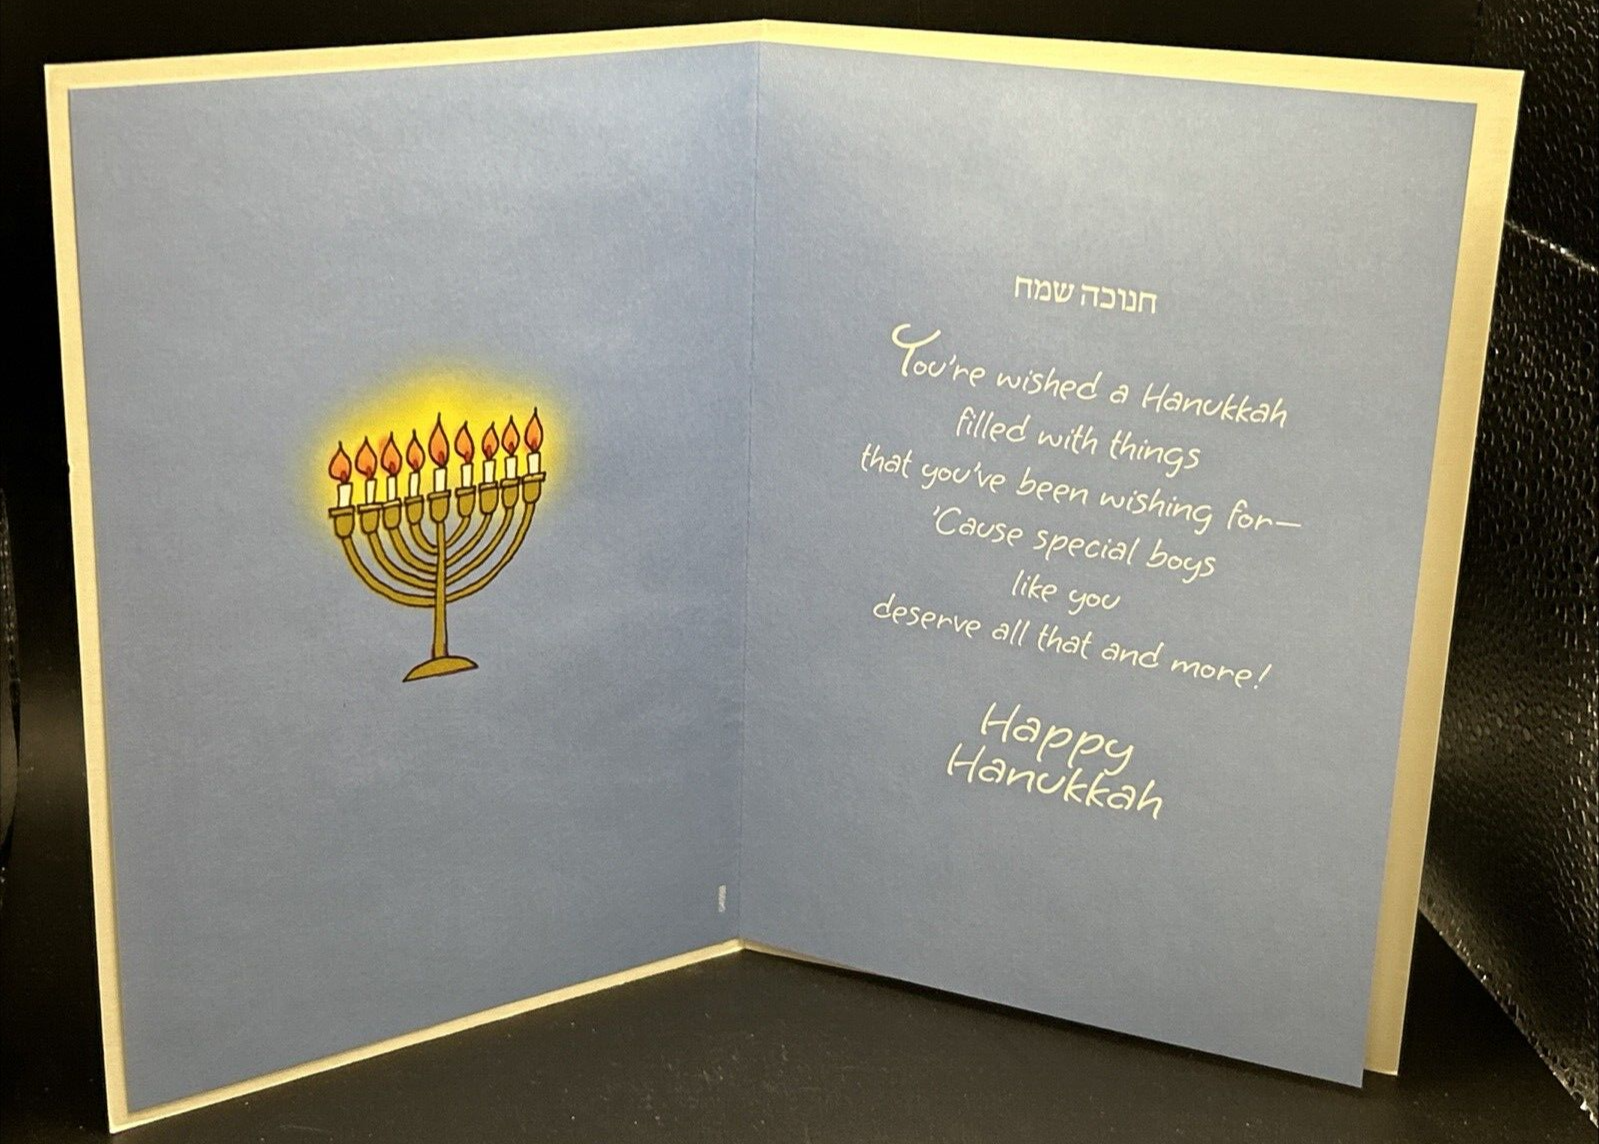 חנוכה שמח
You're wished a Hanukkah
filled with things
that you've been wishing for—
'Cause special boys
like you
deserve all that and more!
Happy
Hanukkah